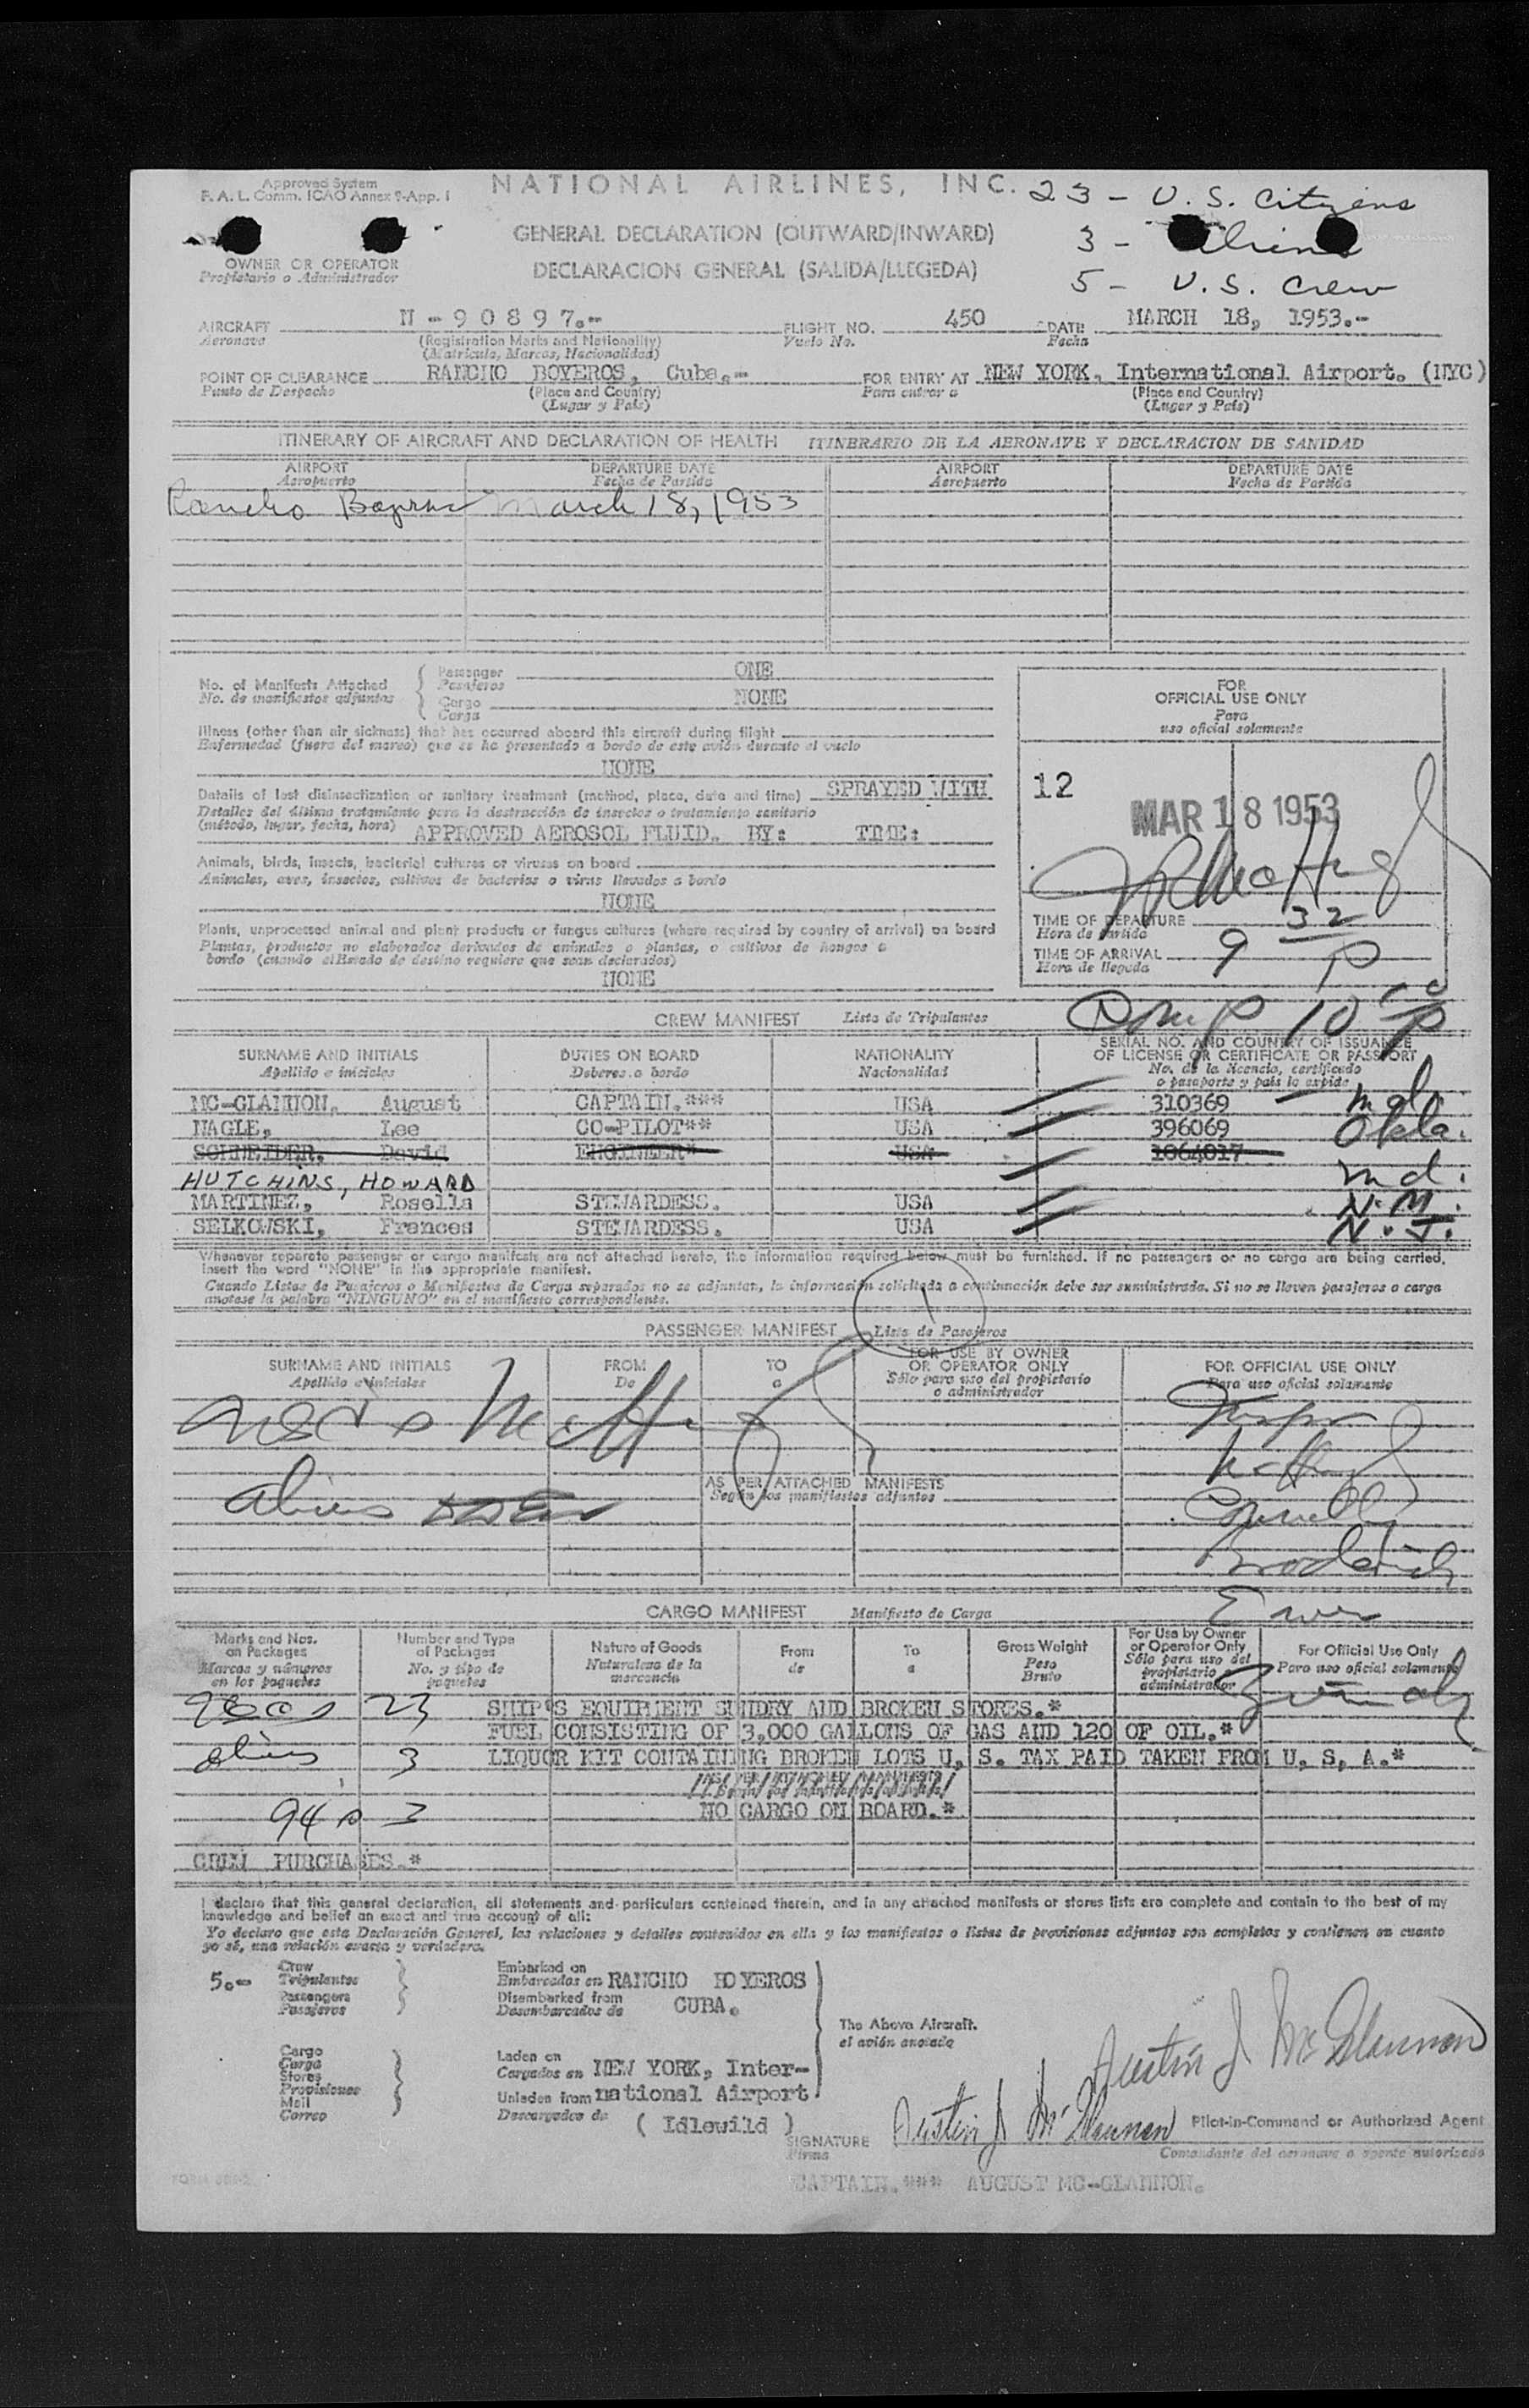 Approved System
F. A. L. Comm. ICAO Annex 9-App. I
NATIONAL AIRLINES, INC.
23 - U. S. Citizens
GENERAL DECLARATION (OUTWARD/INWARD)
3 - Aliens
OWNER OR OPERATOR
Propietario o Administrador
DECLARACION GENERAL (SALIDA/LLEGEDA)
5 - U. S. Crew
AIRCRAFT N - 9 0 8 9 7.-
FLIGHT NO. 450
DATE MARCH 18, 1953.-
Aeronave
(Registration Marks and Nationality)
Vuelo No.
Fecha
(Matricula, Marcas, Nacionalidad)
POINT OF CLEARANCE RANCHO BOYEROS, Cuba.-
FOR ENTRY AT NEW YORK, International Airport. (NYC)
Punto de Despacho
(Place and Country)
Para entrar a
(Place and Country)
(Lugar y País)
(Lugar y País)
ITINERARY OF AIRCRAFT AND DECLARATION OF HEALTH ITINERARIO DE LA AERONAVE Y DECLARACION DE SANIDAD
AIRPORT DEPARTURE DATE AIRPORT DEPARTURE DATE
Aeropuerto Fecha de Partida Aeropuerto Fecha de Partida
Rancho Boyeros March 18, 1953
No. of Manifests Attached
No. de manifiestos adjuntos
Passenger ONE
Pasajeros
Cargo NONE
Carga
FOR
OFFICIAL USE ONLY
Para
uso oficial solamente
Illness (other than air sickness) that has occurred aboard this aircraft during flight
Enfermedad (fuera del mareo) que se ha presentado a bordo de este avión durante el vuelo
NONE
Details of last disinsectization or sanitary treatment (method, place, date and time) SPRAYED WITH
Detalles del último tratamiento para la destrucción de insectos o tratamiento sanitario
(método, lugar, fecha, hora) APPROVED AEROSOL FLUID. BY: TIME:
12
MAR 18 1953
Animals, birds, insects, bacterial cultures or viruses on board
Animales, aves, insectos, cultivos de bacterias o virus llevados a bordo
NONE
Plants, unprocessed animal and plant products or fungus cultures (where required by country of arrival) on board
Plantas, productos no elaborados derivados de animales o plantas, o cultivos de hongos a
bordo (cuando el Estado de destino requiere que sean declarados)
NONE
TIME OF DEPARTURE
Hora de Partida
TIME OF ARRIVAL 9 32 P
Hora de llegada
Comp 10 00 P
CREW MANIFEST Lista de Tripulantes
SURNAME AND INITIALS DUTIES ON BOARD NATIONALITY SERIAL NO. AND COUNTRY OF ISSUANCE
OF LICENSE OR CERTIFICATE OR PASSPORT
Apellido e iniciales Deberes a bordo Nacionalidad No. de la licencia, certificado
o pasaporte y país lo expide
MC-GLANNON, August CAPTAIN.*** USA 310369 Md.
NAGLE, Lee CO-PILOT** USA 396069 Okla.
SCHNEIDER, David ENGINEER* USA 1064017
HUTCHINS, HOWARD Md.
MARTINEZ, Rosella STEWARDESS. USA N. M.
SELKOWSKI, Frances STEWARDESS. USA N. J.
Whenever separate passenger or cargo manifests are not attached hereto, the information required below must be furnished. If no passengers or no cargo are being carried,
insert the word "NONE" in the appropriate manifest.
Cuando Listas de Pasajeros o Manifiestos de Carga separados no se adjuntan, la información solicitada a continuación debe ser suministrada. Si no se lleven pasajeros o carga
anotese la palabra "NINGUNO" en el manifiesto correspondiente.
1
PASSENGER MANIFEST Lista de Pasajeros
SURNAME AND INITIALS FROM TO FOR USE BY OWNER
OR OPERATOR ONLY FOR OFFICIAL USE ONLY
Apellido e iniciales De a Sólo para uso del propietario
o administrador Para uso oficial solamente
AS PER ATTACHED MANIFESTS
Según los manifiestos adjuntos
Aliens
Broderick
CARGO MANIFEST Manifiesto de Carga
Marks and Nos.
on Packages Number and Type
of Packages Nature of Goods From To Gross Weight For Use by Owner
or Operator Only For Official Use Only
Marcas y números
en los paquetes No. y tipo de
paquetes Naturaleza de la
mercancia de a Peso
Bruto Sólo para uso del
propietario o
administrador Para uso oficial solamente
23 SHIP'S EQUIPMENT SUNDRY AND BROKEN STORES.*
FUEL CONSISTING OF 3,000 GALLONS OF GAS AND 120 OF OIL.*
Aliens 3 LIQUOR KIT CONTAINING BROKEN LOTS U. S. TAX PAID TAKEN FROM U. S. A.*
3 NO CARGO ON BOARD.*
CREW PURCHASES.*
I declare that this general declaration, all statements and particulars contained therein, and in any attached manifests or stores lists are complete and contain to the best of my
knowledge and belief an exact and true account of all:
Yo declaro que esta Declaración General, las relaciones y detalles contenidos en ella y los manifiestos o listas de provisiones adjuntos son completos y contienen en cuanto
yo sé, una relación exacta y verdadera.
5.- Crew
Tripulantes
Passengers
Pasajeros
Embarked on
Embarcados en RANCHO BOYEROS
Disembarked from
Desembarcados de CUBA.
The Above Aircraft.
el avión anotado
Cargo
Carga
Stores
Provisiones
Mail
Correo
Laden on
Cargados en NEW YORK, Inter-
Unladen from national Airport
Descargados de ( Idlewild )
Austin J McGlannon
SIGNATURE Austin J McGlannon Pilot-in-Command or Authorized Agent
Firma Comandante del aeronave o agente autorizado
CAPTAIN.*** AUGUST MC-GLANNON.